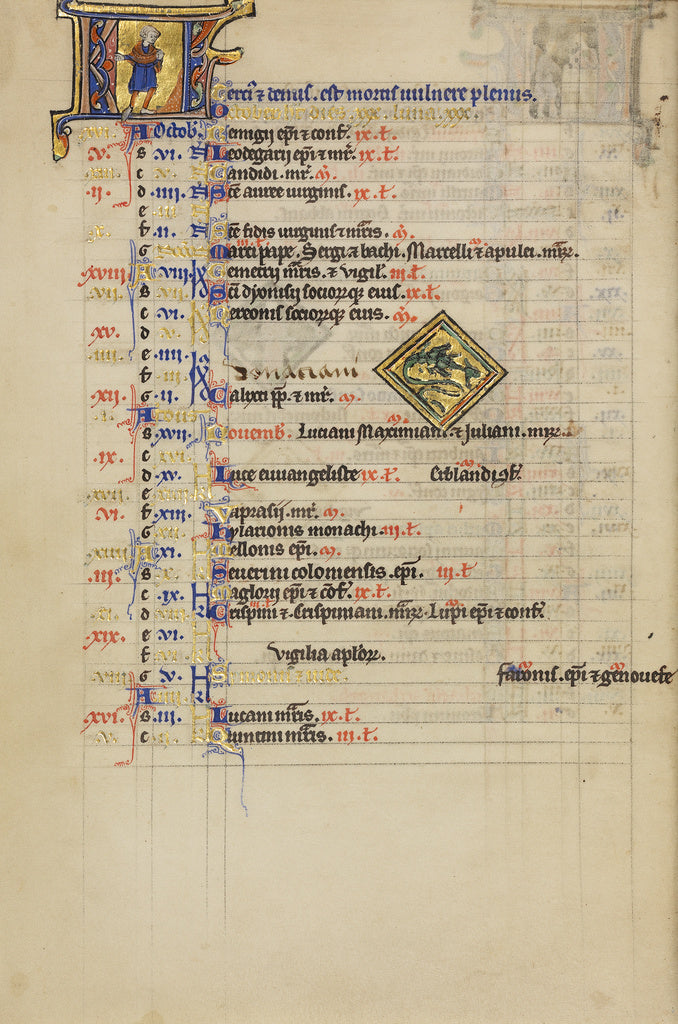 Tercius ⁊ denus. est mortis vulnere plenus.
October h̄t dies. xxx. luna. xxx.
.xvi. A Octob. Remigij ep̄i ⁊ conf. .ix. ł.
.v. b .vi. N Leodegarij ep̄i ⁊ mr̄. .ix. ł.
c .v. Candidi. mr̄. m̄.
.ii. d .iiii. N Sc̄e auree uirginis. .ix. ł.
e .iii.
.x. f .ii. N Sc̄e fidis uirginis ⁊ mr̄is. m̄.
G Marci pape. Sergi ⁊ bachi. Marcelli ⁊ apulei. mr̄.
.xviii. A .viii. Demetrij mr̄is. ⁊ vigil'. iii. ł.
.vii. b .vii. Sc̄i dyonisij sociorqꝫ eius. .ix. ł.
c .vi. Gereonis sociorqꝫ eius. m̄.
.xv. d .v.
.iiii. e .iiii.
f .iii. Donaciani
.xii. G .ii. Calixti pp̄. ⁊ mr̄. m̄.
.i. A Idus
b .xvii. Nouemb. Luciani Maximiani. ⁊ Juliani. mr̄.
.ix. c
d .xv. Luce euuangeliste .ix. ł. Erblandi
.xvii. e
.vi. f .xiii. Caprasii. mr̄. m̄.
G .xii. hylarionis monachi. iii. ł.
.xiiii. A .xi. Mellonis ep̄i. m̄.
.iii. b .x. Seuerini coloniensis. ep̄i. iii. ł
c .ix. K Maglorij ep̄i ⁊ cōf. .ix. ł.
.xi. d Crispini ⁊ Crispiniani. mr̄. Lupi ep̄i ⁊ conf.
.xix. e .vi.
f .v. vigilia aplōr.
.viii. G .v. K Simonis ⁊ iude. faronis. ep̄i ⁊ genouefe
A .iiii.
.xvi. b .iii. Lucani mr̄is. .ix. ł.
.v. c Quintini mr̄is. iii. ł.